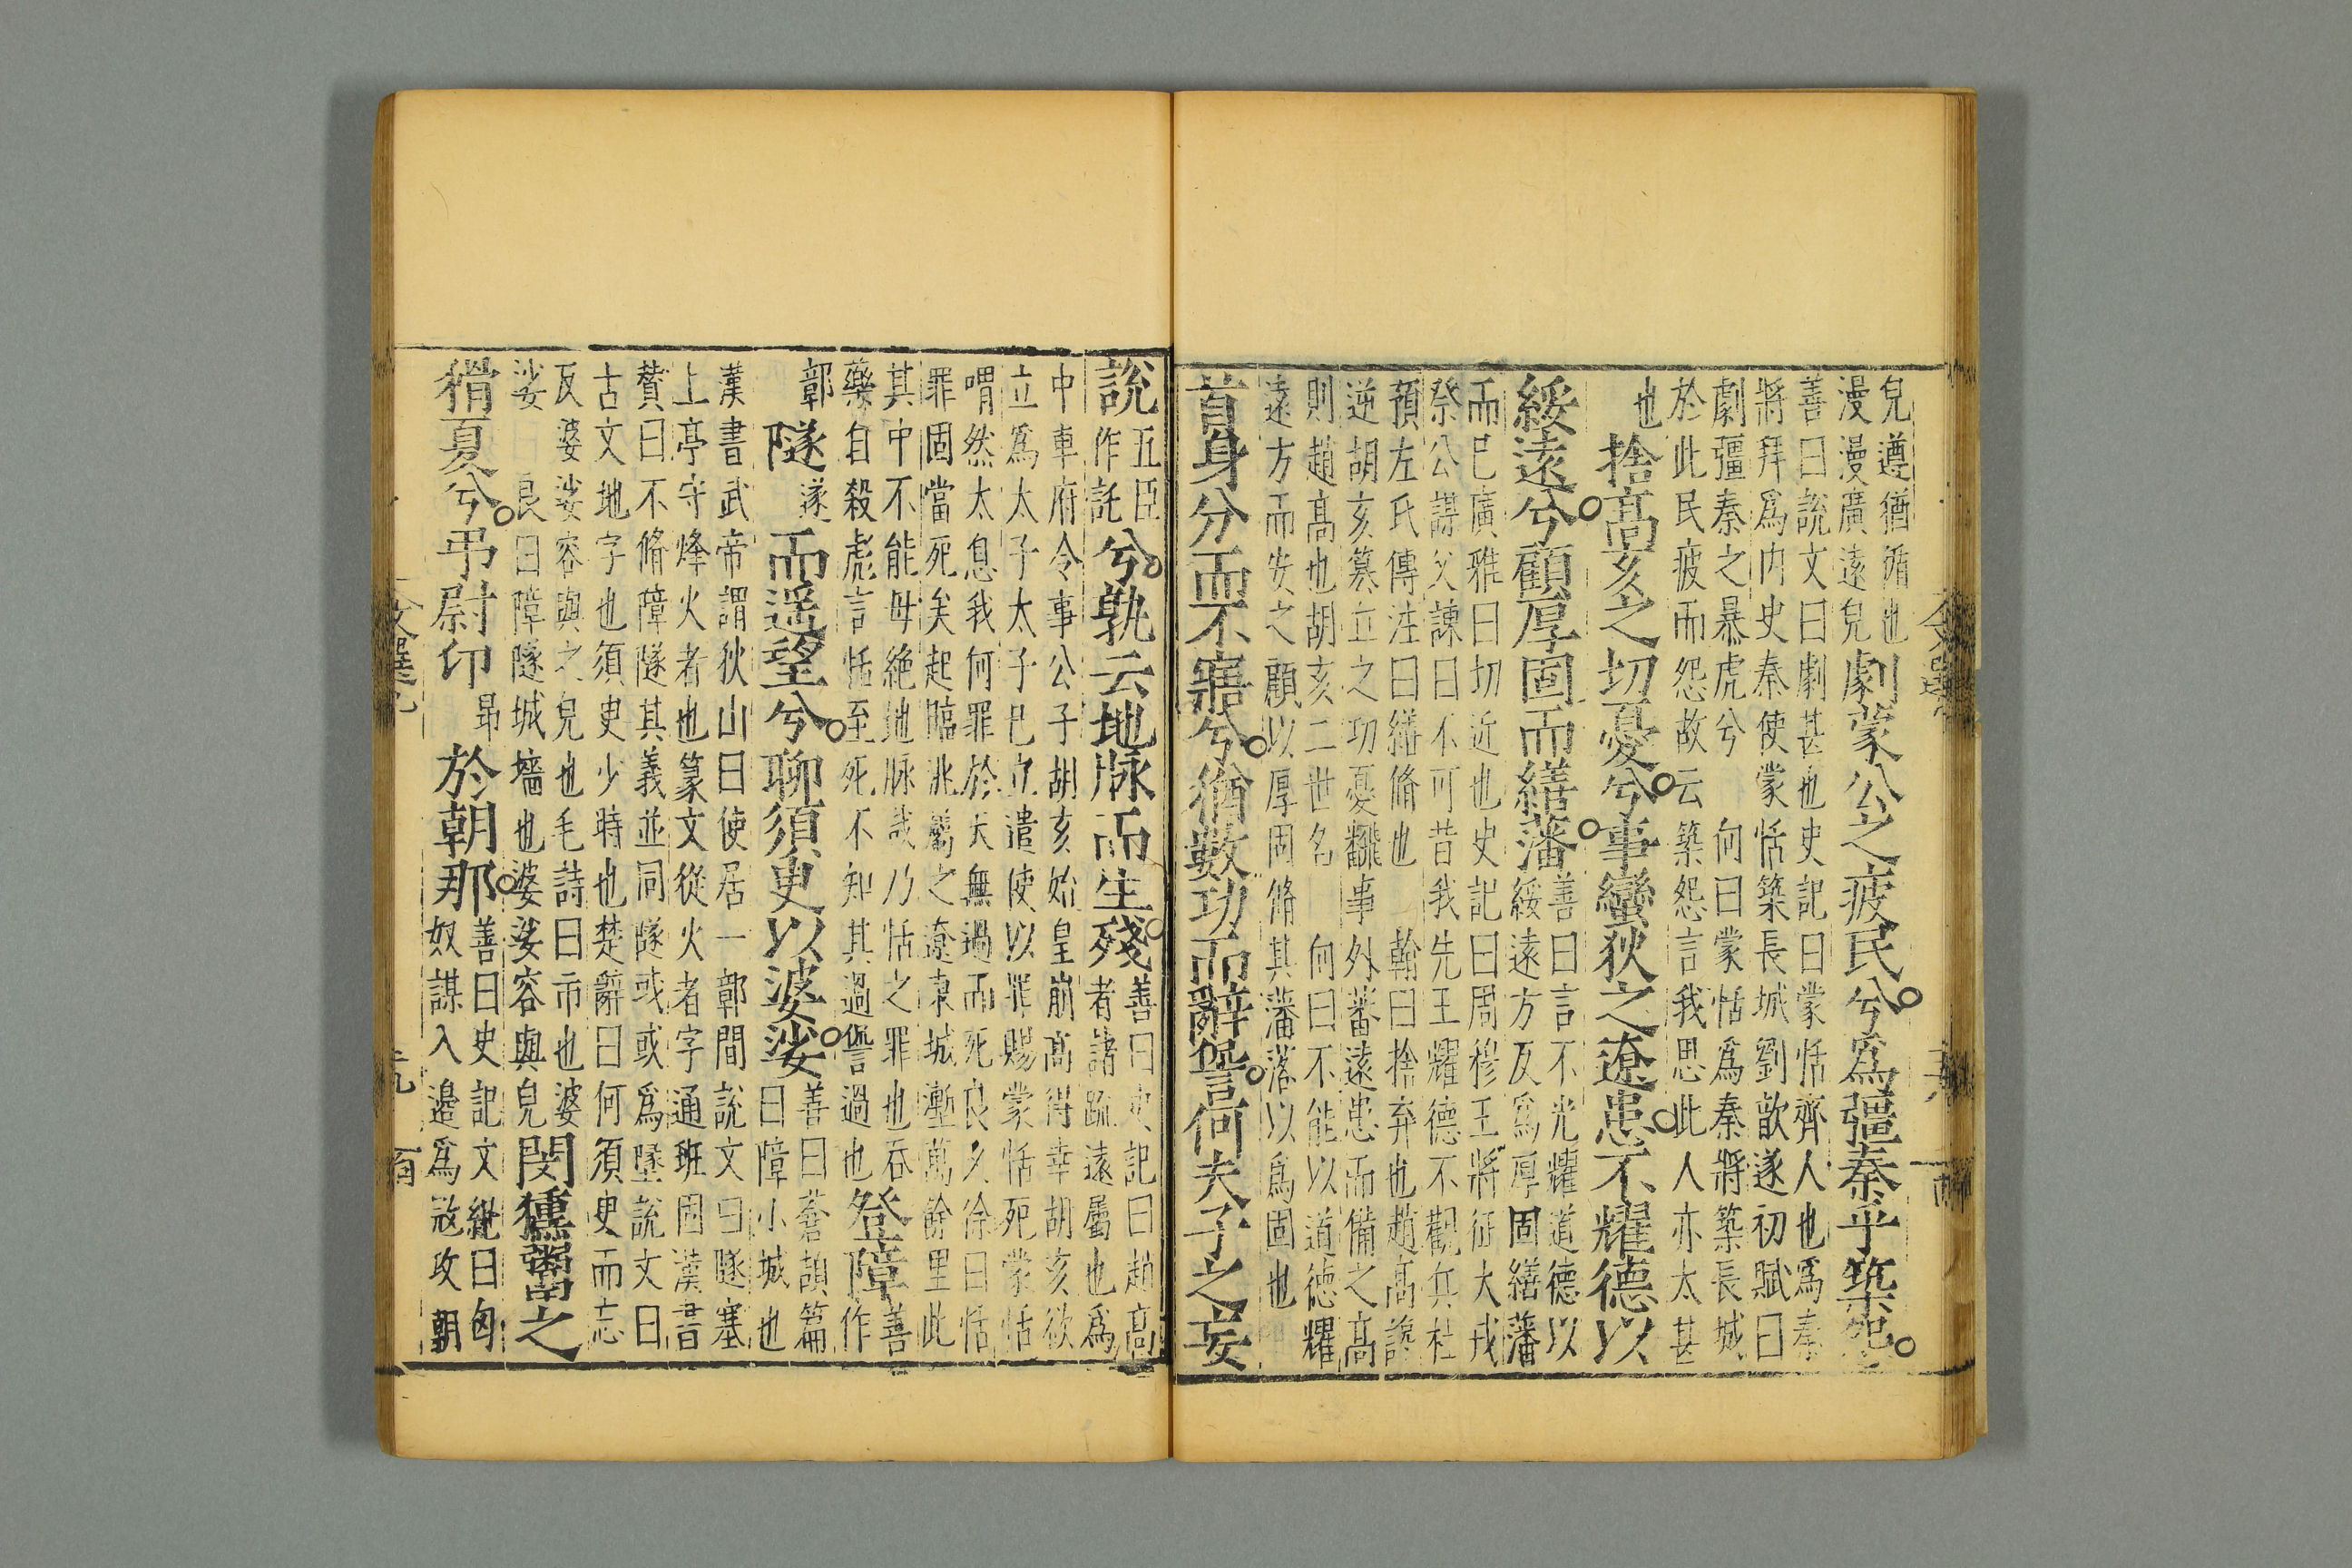 皃遵猶循也
漫漫廣遠皃
劇蒙公之疲民兮爲彊秦乎築怨
善曰說文曰劇甚也史記曰蒙恬齊人也爲秦
將拜爲内史秦使蒙恬築長城劉歆遂初賦曰
劇彊秦之暴虎兮　向曰蒙恬爲秦將築長城
於此民疲而怨故云築怨言我思此人亦太甚
也
捨高亥之切憂兮事蠻狄之遼患不耀德以
綏遠兮顧厚固而繕藩
善曰言不光耀道德以
綏遠方反爲厚固繕藩
而已廣雅曰切近也史記曰周穆王將征犬戎
祭公謀父諫曰不可昔我先王耀德不觀兵杜
預左氏傳注曰繕脩也　翰曰捨弃也趙高譖
逆胡亥篡立之功憂飜事外蕃遠患而備之高
則趙高也胡亥二世名　向曰不能以道德耀
遠方而安之顧以厚固脩其藩落以爲固也
首身分而不寤兮猶數功而辭𠍴何夫子之妄
說
五臣
作託
兮孰云地脉而生殘
善曰史記曰趙高
者諸疏遠屬也爲
中車府令事公子胡亥始皇崩高得幸胡亥欲
立爲太子太子已立遣使以罪賜蒙恬死蒙恬
喟然太息我何罪於天無過而死良久徐曰恬
罪固當死矣起臨洮屬之遼東城塹萬餘里此
其中不能毋絶地脉哉乃恬之罪也吞
藥自殺虎言恬至死不知其過𠍴過也
登障
善
作
鄣
隧
遂
而遥望兮聊須臾以婆娑
善曰蒼頡篇
曰障小城也
漢書武帝謂狄山曰使居一鄣間說文曰隧塞
上亭守烽火者也篆文從火者字通班固漢書
贊曰不脩障隧其義並同隧或或爲墜說文曰
古文地字也須臾少時也楚辭曰何須臾而忘
反婆娑容與之皃也毛詩曰市也婆
娑　良曰障隧城墻也婆娑容與皃
閔獯鬻之
猾夏兮弔尉卬
昴
於朝那
善曰史記文紀曰匈
奴謀入邊爲㓂攻朝